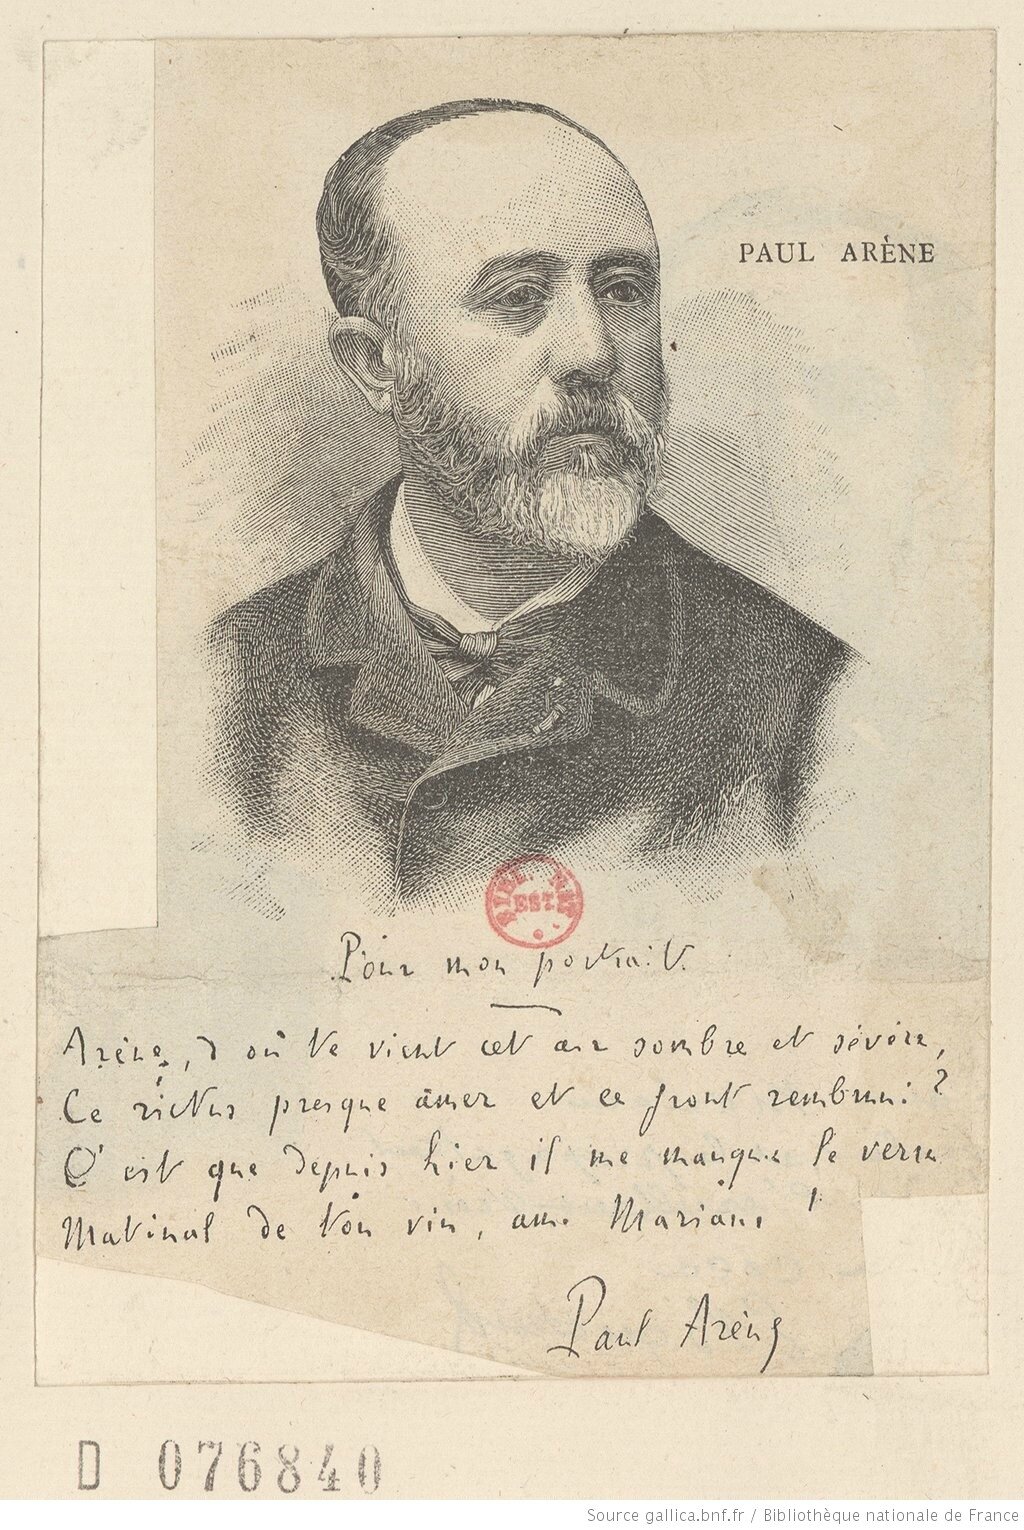 PAUL ARÈNE
BIBL. NAT.
EST.
Pour mon portrait
Arène, d'où te vient cet air sombre et sévère,
Ce rictus presque amer et ce front rembruni ?
C'est que depuis hier il me manque le verre
Matinal de ton vin, ami Mariani !
Paul Arène
D 076840
Source gallica.bnf.fr / Bibliothèque nationale de France